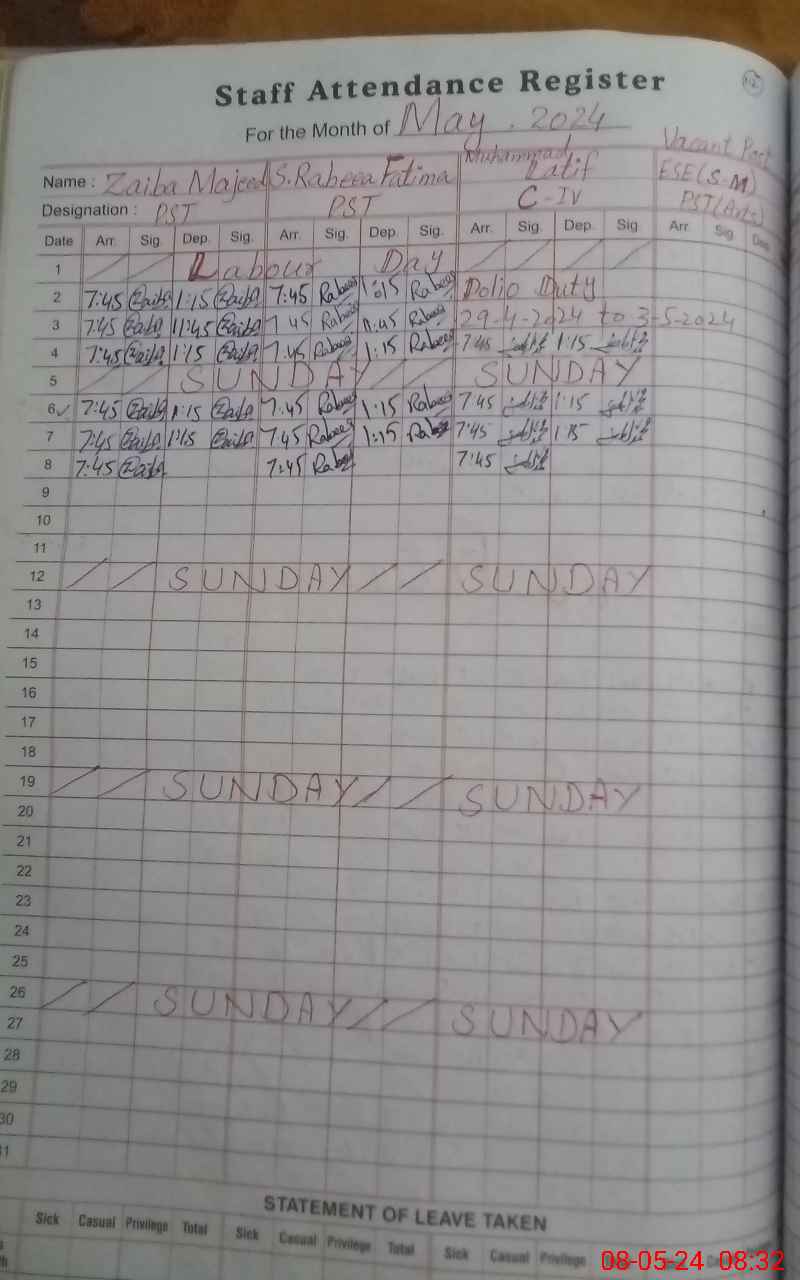 12
Staff Attendance Register
For the Month of May . 2024
Vacant Post
Name : Zaiba Majeed S. Rabeea Fatima Muhammad Latif ESE(S-M)
Designation : PST PST C-IV PST(Arts)
Date Arr. Sig. Dep. Sig. Arr. Sig. Dep. Sig. Arr. Sig. Dep. Sig. Arr. Sig. Dep.
1 Labour Day
2 7:45 Zaiba 1:15 Zaiba 7:45 Rabeea 1:15 Rabeea Polio Duty
3 7:45 Zaiba 11:45 Zaiba 7 45 Rabeea 11:45 Rabeea 29-4-2024 to 3-5-2024
4 7:45 Zaiba 1:15 Zaiba 7:45 Rabeea 1:15 Rabeea 7:45 1:15
5 SUNDAY SUNDAY
6 7:45 Zaiba 1:15 Zaiba 7:45 Rabeea 1:15 Rabeea 7:45 1:15
7 7:45 Zaiba 1:15 Zaiba 7:45 Rabeea 1:15 Rabeea 7:45 1:15
8 7:45 Zaiba 7:45 Rabeea 7:45
9
10
11
12 SUNDAY SUNDAY
13
14
15
16
17
18
19 SUNDAY SUNDAY
20
21
22
23
24
25
26 SUNDAY SUNDAY
27
28
29
30
31
STATEMENT OF LEAVE TAKEN
Sick Casual Privilege Total Sick Casual Privilege Total Sick Casual Privilege
08-05-24 08:32